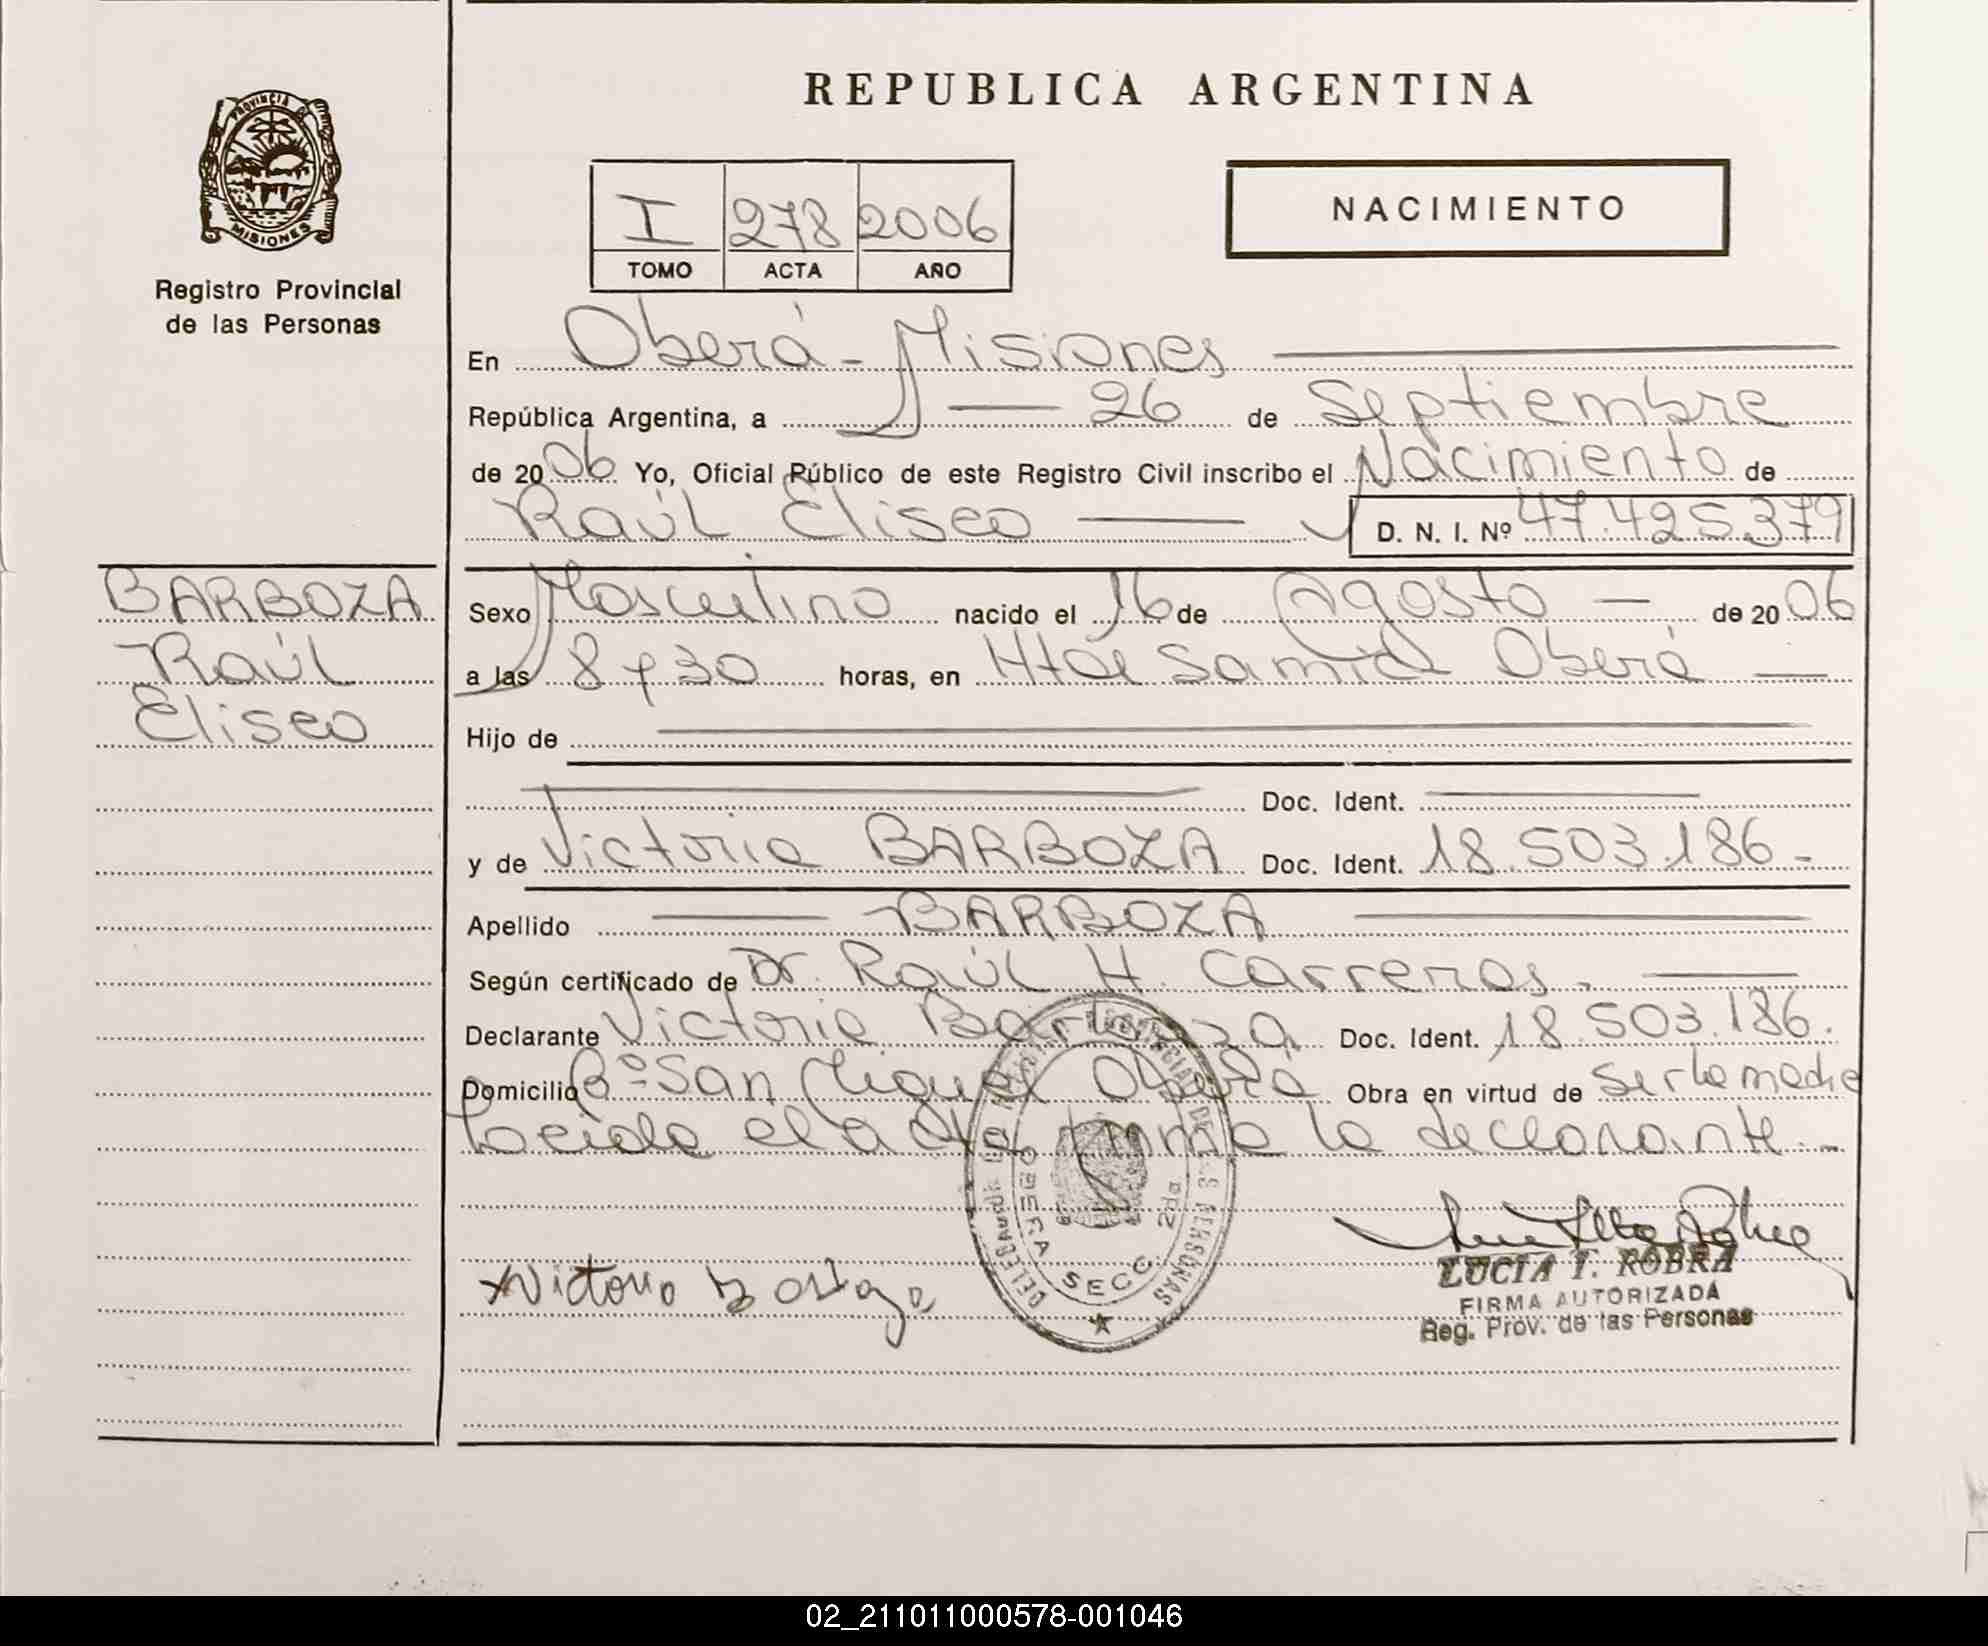 REPUBLICA ARGENTINA
PROVINCIA DE
MISIONES
Registro Provincial
de las Personas
I 278 2006
TOMO ACTA AÑO
NACIMIENTO
En Oberá - Misiones
República Argentina, a 26 de Septiembre
de 2006 Yo, Oficial Público de este Registro Civil inscribo el Nacimiento de
Raúl Eliseo D. N. I. Nº 47.425.379
BARBOZA
Raúl
Eliseo
Sexo Masculino nacido el 16 de Agosto de 2006
a las 8 y 30 horas, en Htal Samic Oberá
Hijo de
Doc. Ident.
y de Victoria BARBOZA Doc. Ident. 18.503.186-
Apellido BARBOZA
Según certificado de Dr. Raúl H. Carreras.
Declarante Victoria Barboza Doc. Ident. 18.503.186.
Domicilio Bº San Miguel Oberá Obra en virtud de ser la madre
Leída el acta firma la declarante.-
DELEGACION PROVINCIAL DE LAS PERSONAS
OBERA SECC. 2da
Victoria Barboza
LUCIA I. ROBRA
FIRMA AUTORIZADA
Reg. Prov. de las Personas
02_211011000578-001046